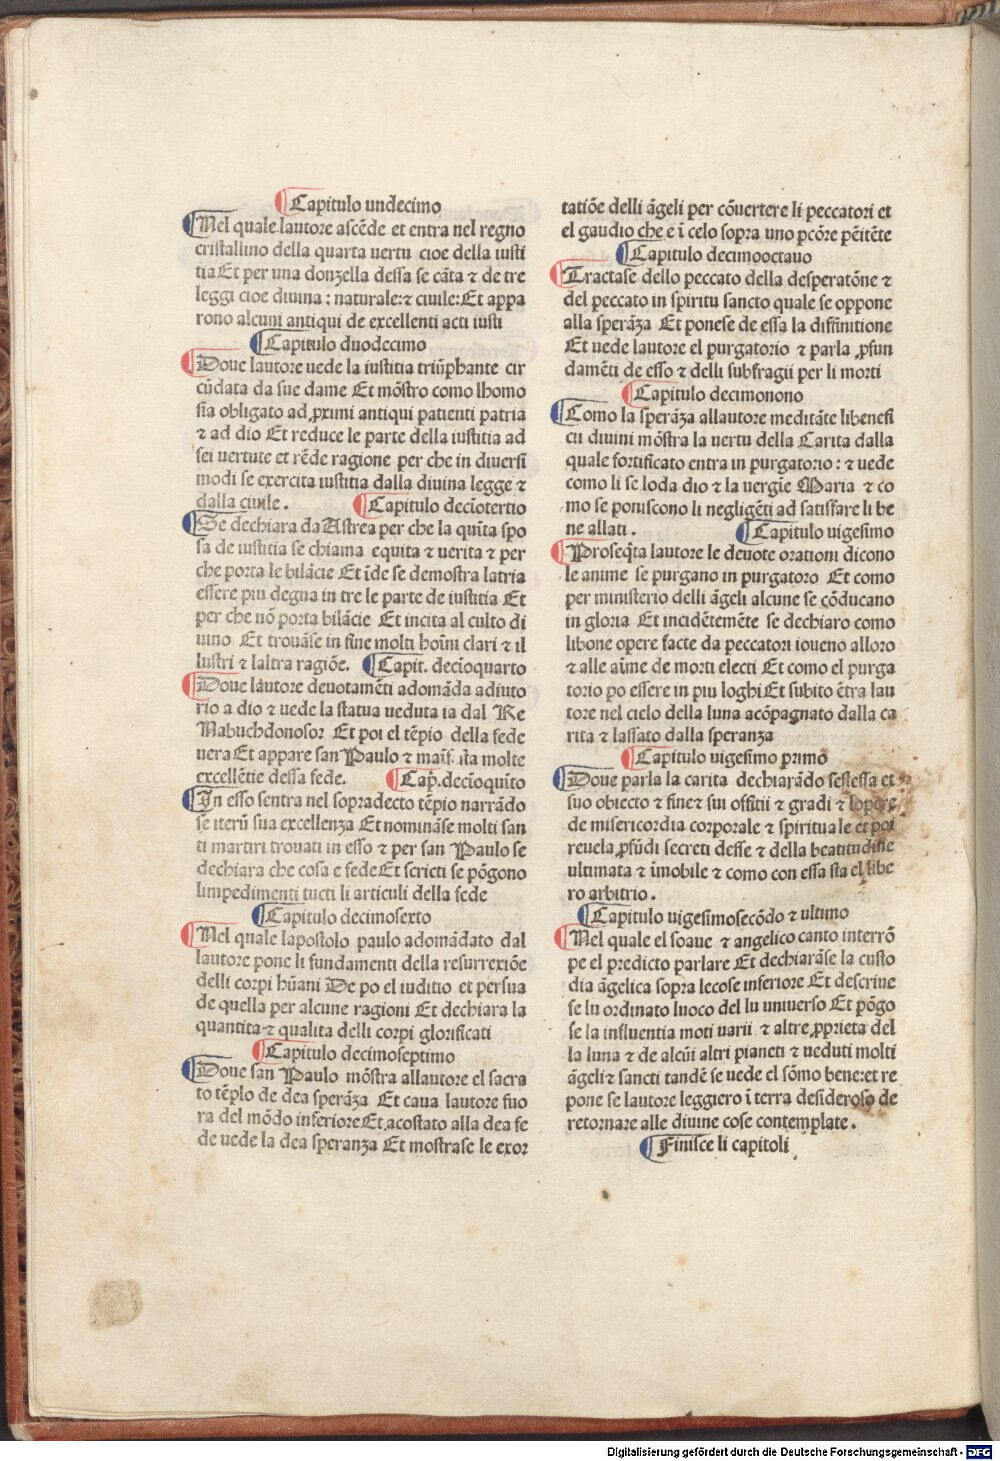 Capitulo undecimo
Nel quale lautore ascẽde et entra nel regno
cristallino della quarta uertu cioe della iusti
tia Et per una donzella dessa se cãta ⁊ de tre
leggi cioe diuina : naturale:⁊ ciuile:Et appa
rono alcuni antiqui de excellenti acti iusti
Capitulo duodecimo
Doue lautore uede la iustitia triũphante cir
cũdata da sue dame Et mõstro como lhomo
sia obligato ad ꝓximi antiqui patienti patria
⁊ ad dio Et reduce le parte della iustitia ad
sei uertute et rẽde ragione per che in diuersi
modi se exercita iustitia dalla diuina legge ⁊
dalla ciuile . Capitulo deciotertio
Se dechiara da Astrea per che la quĩta spo
sa de iustitia se chiama equita ⁊ uerita ⁊ per
che porta le bilãcie Et ĩde se demostra latria
essere piu degna in tre le parte de iustitia Et
per che nõ porta bilãcie Et incita al culto di
uino Et trouãse in fine molti hoĩni clari ⁊ il
lustri ⁊ laltra ragiõe. Capit. decĩoquarto
Doue lautore deuotamẽti adomãda adiuto
rio a dio ⁊ uede la statua ueduta ia dal Re
Nabuchdonosor Et poi el tẽpio della fede
uera Et appare san Paulo ⁊ maĩfesta molte
excellẽtie dessa fede. Cap. decĩoquĩto
In esso sentra nel sopradecto tẽpio narrãdo
se iterũ sua excellenza Et nominãse molti san
ti martiri trouati in esso ⁊ per san Paulo se
dechiara che cosa e fede Et scricti se põgono
limpedimenti tucti li articuli della fede
Capitulo decimosexto
Nel quale lapostolo paulo adomãdato dal
lautore pone li fundamenti della resurrexiõe
delli corpi hũani De po el iuditio et persua
de quella per alcune ragioni Et dechiara la
quantita ⁊ qualita delli corpi glorificati
Capitulo decimoseptimo
Doue san Paulo mõstra allautore el sacra
to tẽplo de dea sperãza Et caua lautore fuo
ra del mõdo inferiore Et acostato alla dea fe
de uede la dea speranza Et mostrase le exor
tatiõe delli ãgeli per cõuertere li peccatori et
el gaudio che e ĩ celo sopra uno pcõre pẽitẽte
Capitulo decimooctauo
Tractase dello peccato della desperatõne ⁊
del peccato in spiritu sancto quale se oppone
alla sperãza Et ponese de essa la diffinitione
Et uede lautore el purgatorio ⁊ parla ꝓfun
damẽti de esso ⁊ delli subfragii per li morti
Capitulo decimonono
Como la sperãza allautore meditãte libenefi
cii diuini mõstra la uertu della Carita dalla
quale fortificato entra in purgatorio : ⁊ uede
como li se loda dio ⁊ la uergĩe Maria ⁊ co
mo se poniscono li negligẽti ad satisfare li be
ne allati . Capitulo uigesimo
Proseq̃ta lautore le deuote orationi dicono
le anime se purgano in purgatoro Et como
per ministerio delli ãgeli alcune se cõducano
in gloria Et incidẽtemẽte se dechiaro como
libone opere facte da peccatori ioueno alloro
⁊ alle aĩme de morti electi Et como el purga
torio po essere in piu loghi Et subito ẽtra lau
tore nel cielo della luna acõpagnato dalla ca
rita ⁊ lassato dalla speranza
Capitulo uigesimo primo
Doue parla la carita dechiarãdo sestessa et
suo obiecto ⁊ fine⁊ sui offitii ⁊ gradi ⁊ lopere
de misericordia corporale ⁊ spirituale et poi
reuela ꝓfũdi secreti desse ⁊ della beatitudine
ultimata ⁊ ĩmobile ⁊ como con essa sta el libe
ro arbitrio .
Capitulo uigesimosecõdo ⁊ ultimo
Nel quale el soaue ⁊ angelico canto interrõ
pe el predicto parlare Et dechiarãse la custo
dia ãgelica sopra lecose inferiore Et descriue
se lu ordinato luoco del lu uniuerso Et põgo
se la influentia moti uarii ⁊ altre ꝓprieta del
la luna ⁊ de alcũi altri pianeti ⁊ ueduti molti
ãgeli⁊ sancti tandẽ se uede el sõmo bene:et re
pone se lautore leggiero ĩ terra desideroso de
retornare alle diuine cose contemplate .
Finisce li capitoli
Digitalisierung gefördert durch die Deutsche Forschungsgemeinschaft - DFG